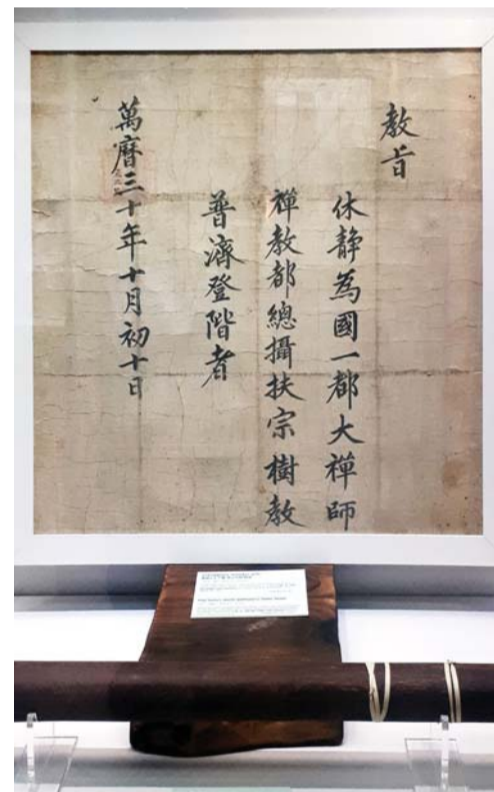 教旨
休静為國一都大禅師
禅教都總攝扶宗樹教
普濟登階者
萬曆三十年十月初十日